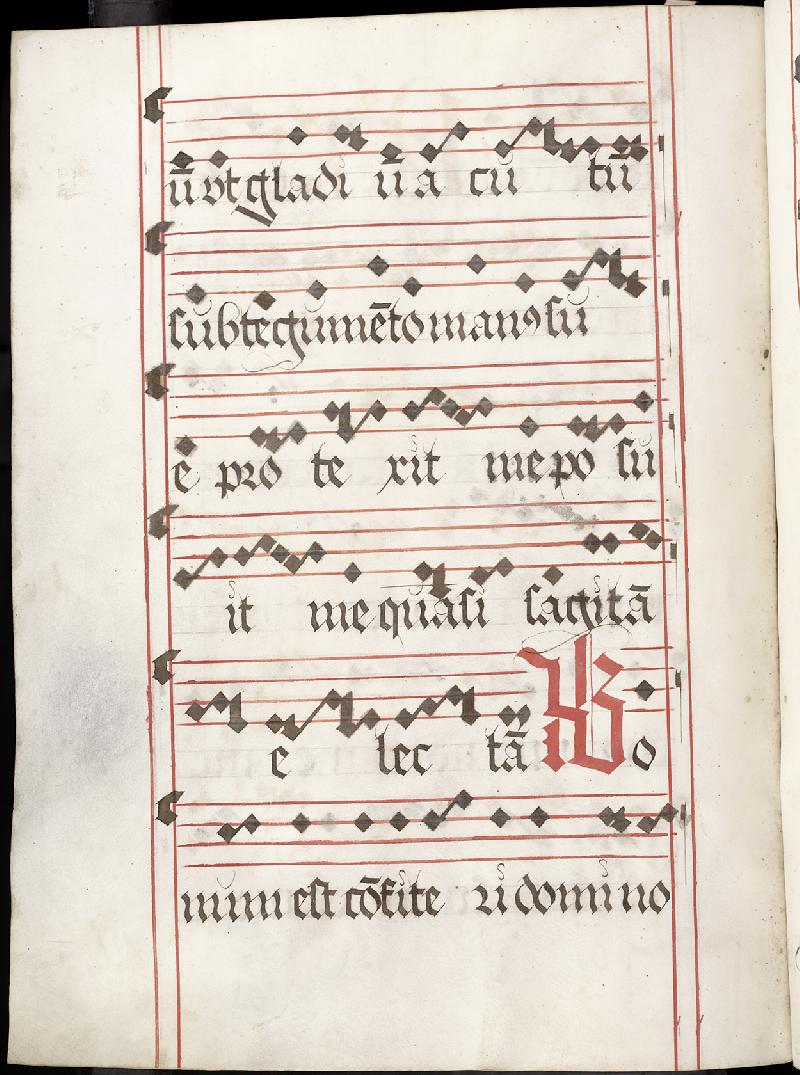 ū vt gladi ū a cu tū
sub tegumēto manꝯ su
e pro te xit me po su
it me quasi sagitā
e lec tā Bo
num est cōfite ri domino